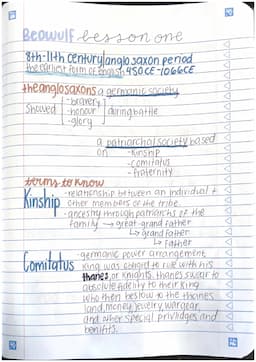 Beowulf lesson one
8th-11th century|anglo saxon period
the earliest form of english 450CE-1066CE
the anglosaxons a germanic society
-bravery
Showed -honour during battle
-glory
a patriarchal society based
on -kinship
-comitatus
-fraternity
terms to know
Kinship -relationship between an individual &
other members of the tribe.
-ancestry through patriarchs of the
family → great grand father
↳ grand father
↳ father
Comitatus -germanic power arrangement
king was obligd to rule with his
thanes, or knights. thanes swear to
absolute fidelity to their king
who then bestow to the thanes
land, money, jewelry, wargear,
and other special priviledges and
benifits.